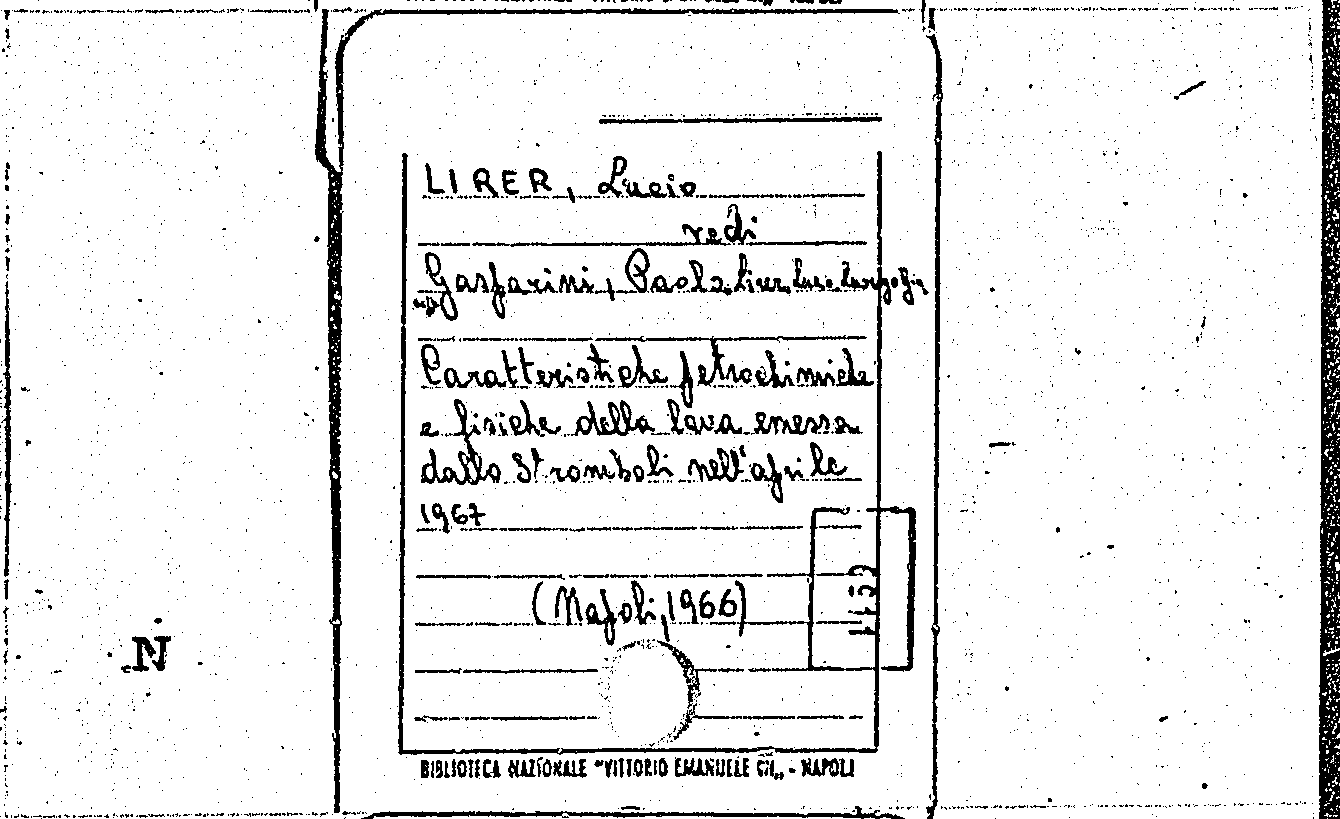 LIRER, Lucio
vedi
Gasparini, Paolo, Lirer, Lucio
Caratteristiche petrochimiche
e fisiche della lava emessa
dallo Stromboli nell'aprile
1967
(Napoli, 1966)
N
BIBLIOTECA NAZIONALE "VITTORIO EMANUELE III„ - NAPOLI